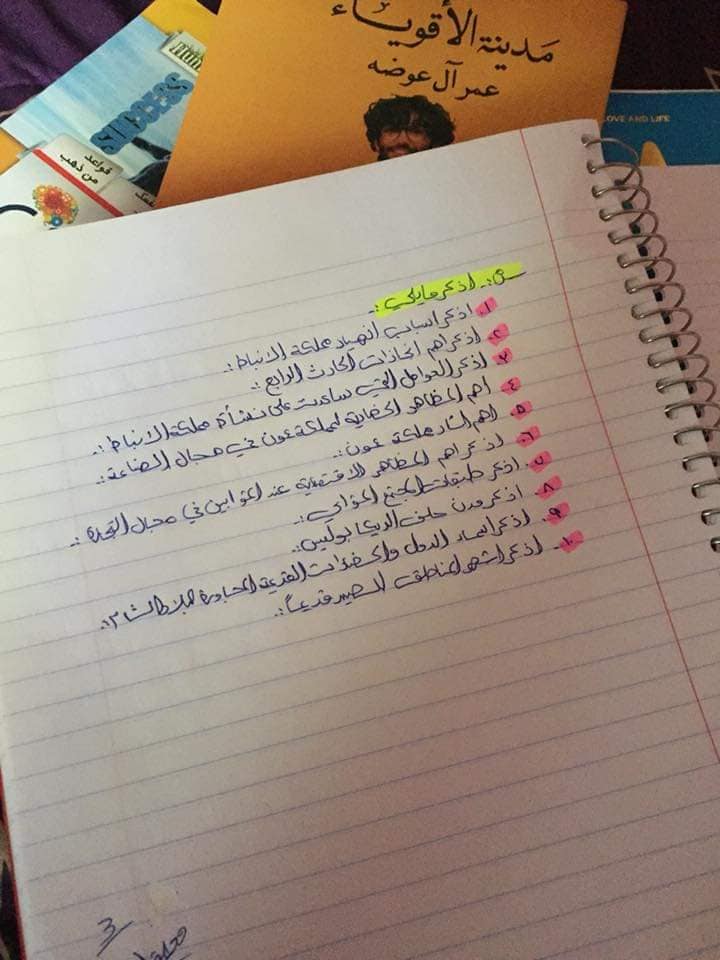 مدينة الأقوياء
عمر آل عوضه
SUCCESS
قواعد
من ذهب
LOVE AND LIFE
س:- اذكر مايلي :-
١. اذكر اسباب انهيار مملكة الانباط :.
٢. اذكر اهم انجازات الحارث الرابع :.
٣. اذكر العوامل التي ساعدت على نشأة مملكة الانباط :.
٤. اهم المظاهر الحضارية لمملكة عمون في مجال الصناعة :.
٥. اهم آثار مملكة عمون :.
٦. اذكر اهم المظاهر الاقتصادية عند المؤابين في مجال التجارة :.
٧. اذكر طبقات المجتمع المؤابي :.
٨. اذكر مدن حلف الديكابوليس :.
٩. اذكر اسماء الدول والحضارات القديمة المجاورة لبلاد الشام :.
١٠. اذكر اشهر مناطق الصيد قديماً :.
3